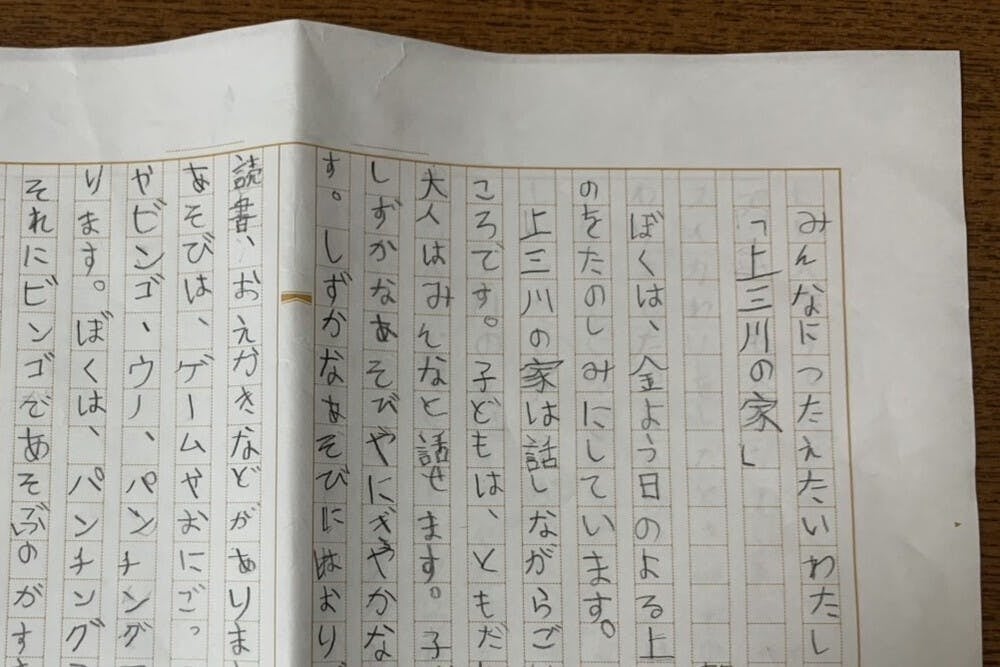 みんなにつたえたいわたし
「上三川の家」
ぼくは、金よう日のよる上
のをたのしみにしています。
上三川の家は話しながらご
ころです。子どもは、ともだ
大人はみんなと話せます。子
しずかなあそびやにぎやかな
す。しずかなあそびにはおり
読書、おえかきなどがありま
あそびは、ゲームやおにご
やビンゴ、ウノ、パンチング
ります。ぼくは、パンチング
それにビンゴであそぶのがす